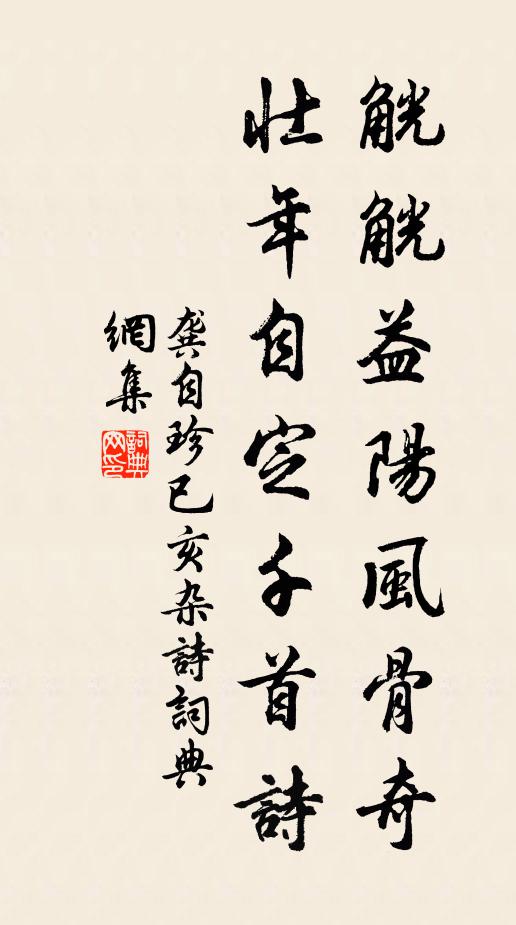 觥觥益陽風骨奇
壯年自定千首詩
龔自珍己亥杂詩詞典
網集
詞典网印